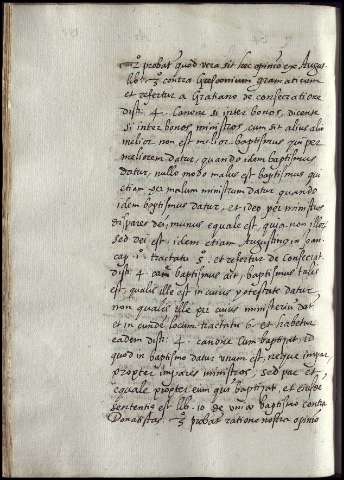 2º probat quod vera sit hec opinio ex Augus
lib. 3 contra Cresconium gramaticum
et refertur a Gratiano de consecratione
dist. 4 Canone si inter bonos, dicente
si inter bonos ministros, cum sit alius alio
melior non est melior baptismus qui per
meliorem datur, quando idem baptismus
datur, nullo modo malus est baptismus qui
etiam per malum ministrum datur quando
idem baptismus datur, et ideo per ministros
dispares dei munus equale est, quia non illor
sed dei est: idem etiam Augustinus in Joan.
cap. 1 tractatu 5 et refertur de Consecrat.
dist. 4 can. baptismus ait, baptismus talis
est qualis ille est in cuius potestate datur
non qualis ille per cuius ministerium dat.
et in eundem locum tractatu 6 et habetur
eadem dist. 4 canone Cum baptizat, id
quod in baptismo datur unum est, neque impar
propter impares ministros, sed par et
equale propter eum qui baptizat, et eiusdem
sententiae est lib. 10 de unico baptismo contra
Donatistas. 3º probat ratione nostra opinio